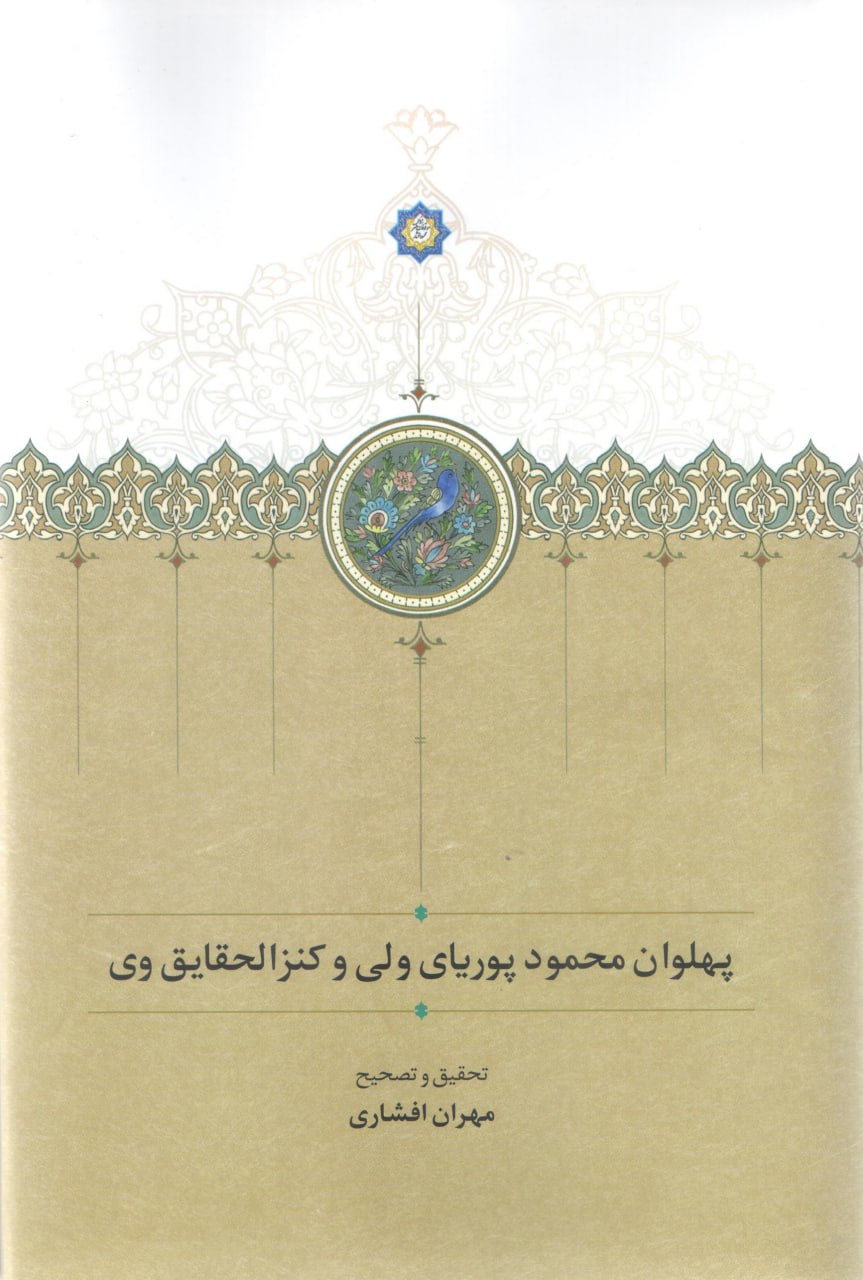 پهلوان محمود پوریای ولی و کنزالحقایق وی
تحقیق و تصحیح
مهران افشاری